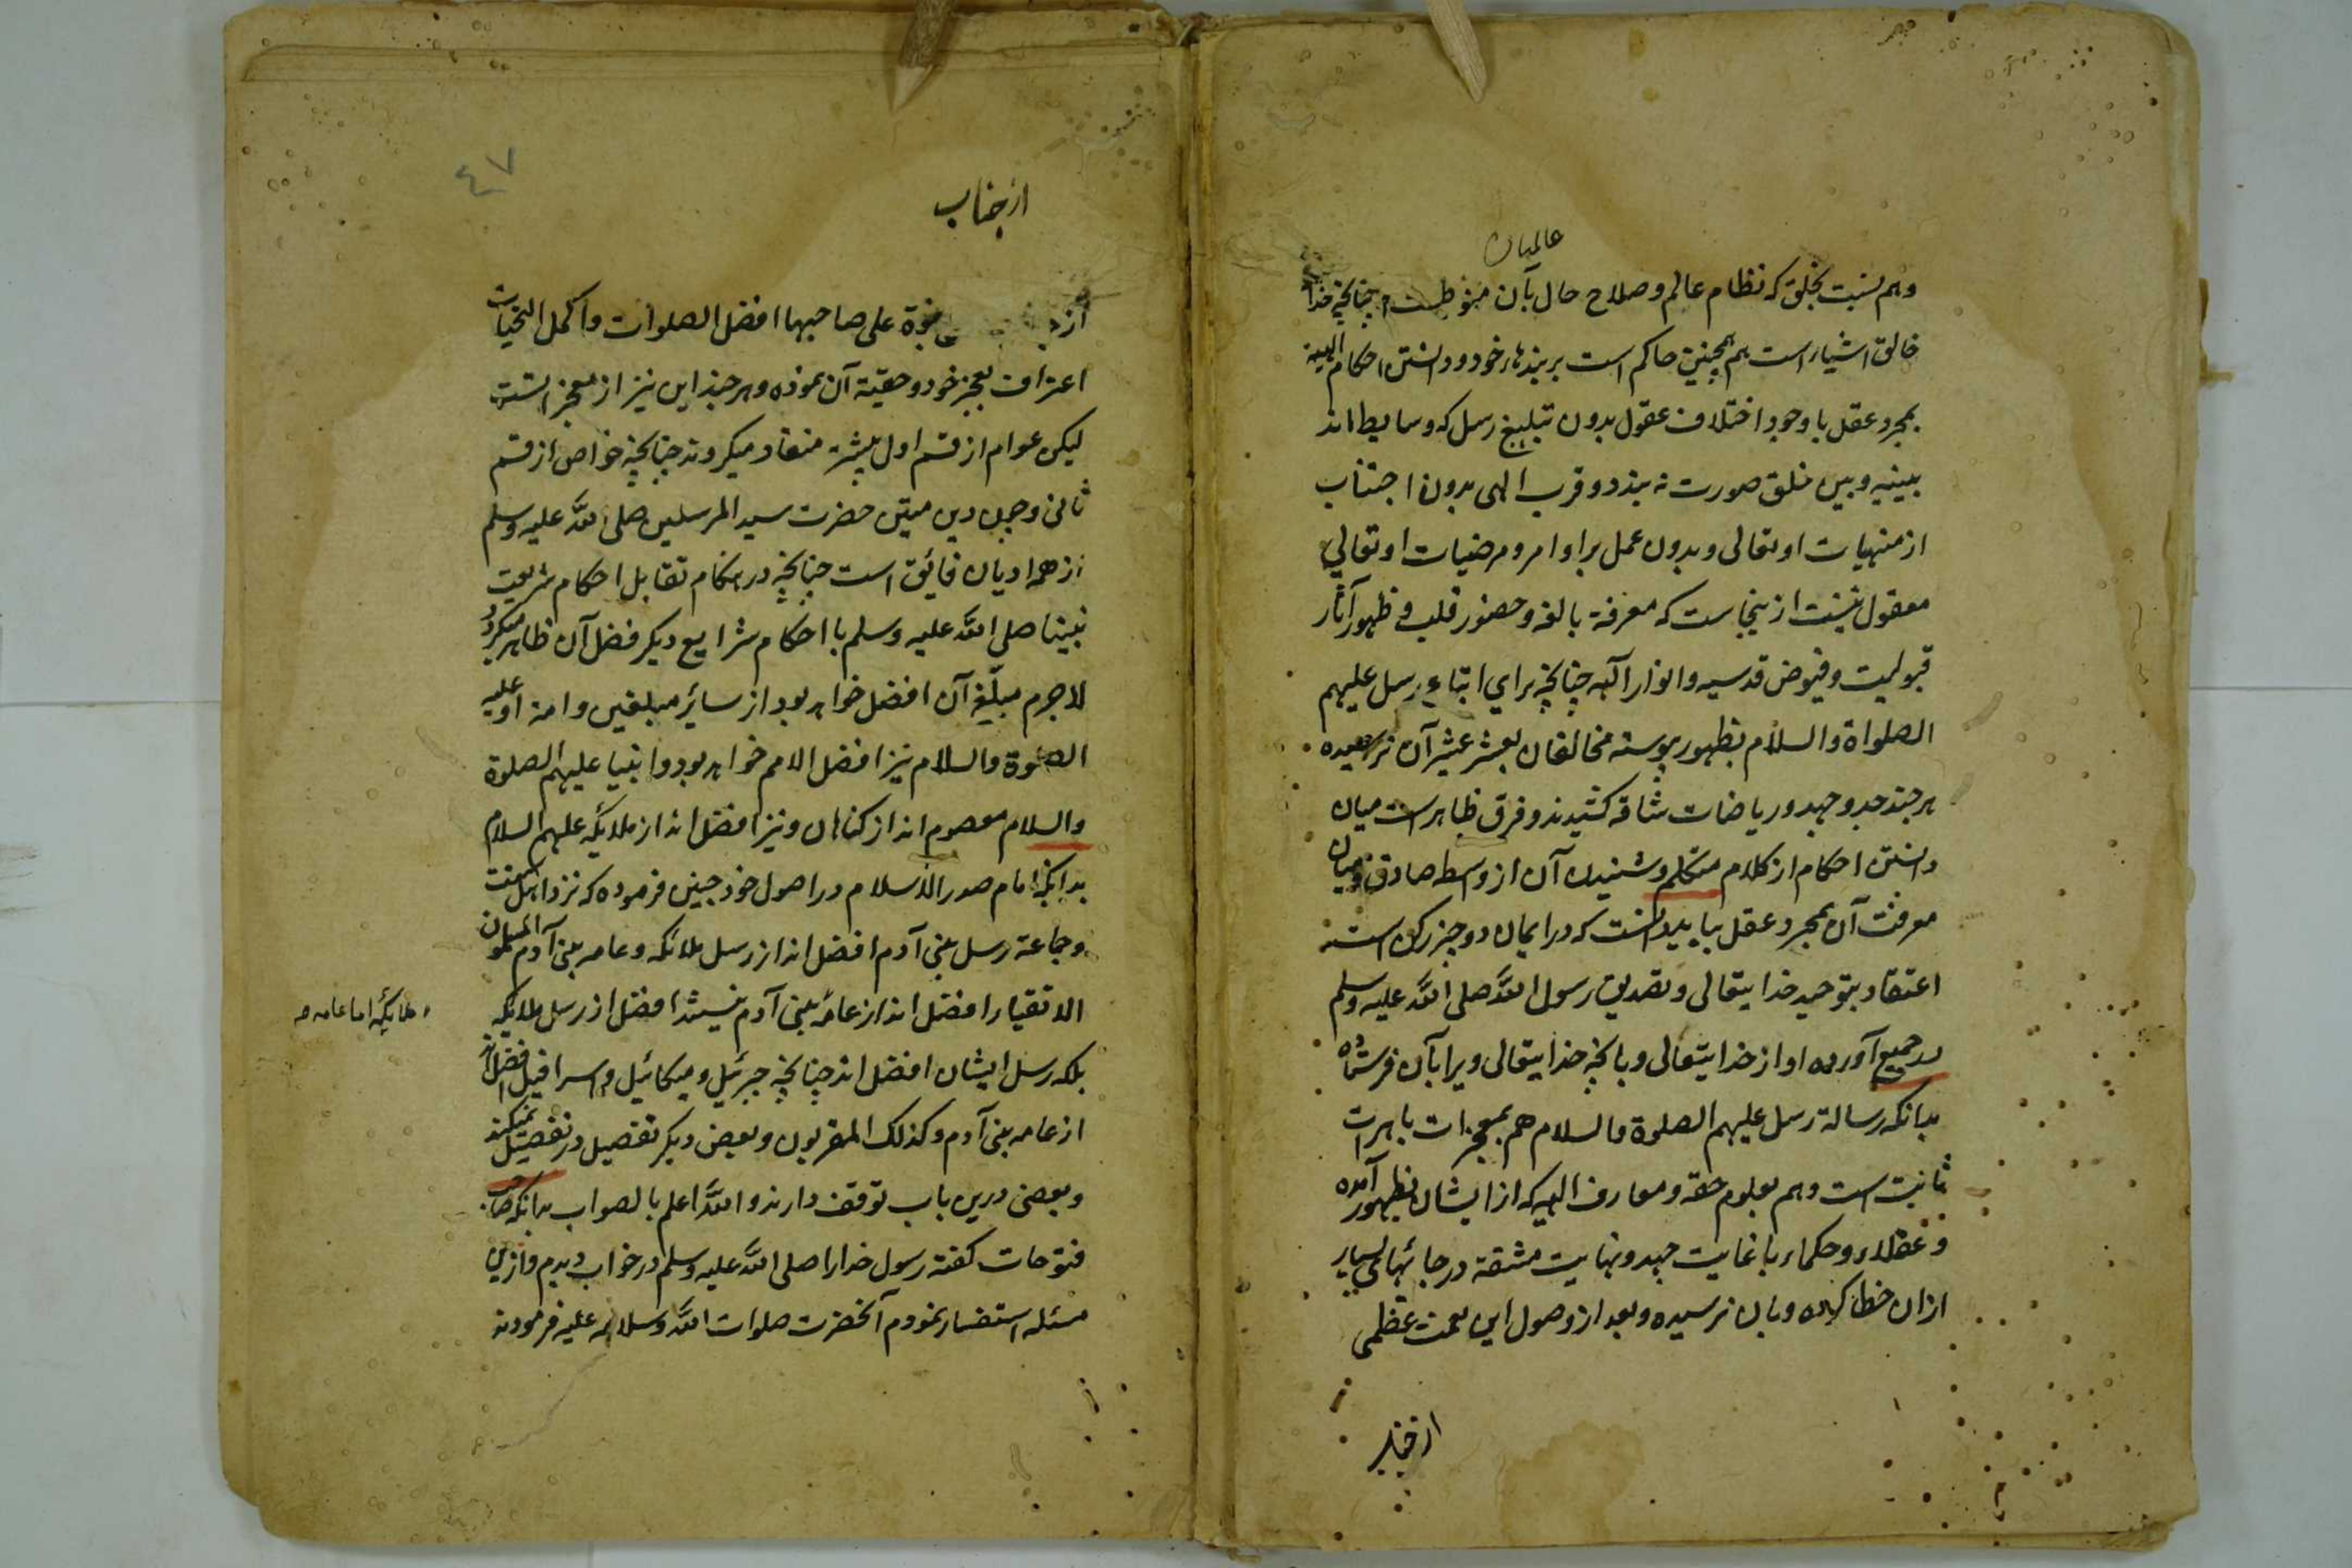 عالمیان
وهم نسبت بخلق که نظام عالم و صلاح حال بآن منوطست چنانچه خدا
خالق اشیاء است هم همچنین حاکم است بر بندهاء خود و دانستن احکام الهیه
بمجرد عقل با وجود اختلاف عقول بدون تبلیغ رسل که وسایط اند
بینه و بین خلق صورت نه بندد و قرب الهی بدون اجتناب
از منهیات او تعالی و بدون عمل بر اوامر و مرضیات او تعالی
معقول نیست ازینجاست که معرفة بالغه و حضور قلب و ظهور آثار
قبولیت و فیوض قدسیه و انوار آلهه چنانچه برای اتباع رسل علیهم
الصلواة والسلام بظهور پیوسته مخالفان بعشر عشیر آن نرسیده
هر چند جد و جهد و ریاضات شاقه کشیدند و فرق ظاهر است میان
دانستن احکام از کلام متکلم و شنیدن آن از وسط صادق و میان
معرفت آن بمجرد عقل بباید دانست که در ایمان دو چیز رکن است
اعتقاد بتوحید خدایتعالی و تصدیق رسول الله صلی الله علیه وسلم
در جمیع آورده او از خدایتعالی و بانچه خدایتعالی ویرا بآن فرستاده
بدانکه رسالة رسل علیهم الصلوة والسلام هم بمعجزات باهرات
ثابت است وهم بعلوم حقه و معارف الهیه که از ایشان بظهور آمده
و عقلاء و حکماء با غایت جهد و نهایت مشقة در جائهای بسیار
ازان خطا کرده و بان نرسیده و بعد از وصول این نعمت عظمی
از جناب
٤٧
از جناب
از نبوة علی صاحبها افضل الصلوات و اکمل التحیات
اعتراف بعجز خود و حقیّة آن نموده و هر چند این نیز از معجز است
لیکن عوام از قسم اول بیشتر منقاد میکردند چنانچه خواص از قسم
ثانی و چون دین متین حضرت سید المرسلین صلی الله علیه وسلم
از همه ادیان فائق است چنانچه در هنکام تقابل احکام شریعت
نبینا صلی الله علیه وسلم با احکام شرایع دیکر فضل آن ظاهر میکردد
لاجرم مبلّغ آن افضل خواهد بود از سائر مبلغین و امة او علیه
الصلوة والسلام نیز افضل الامم خواهد بود و انبیا علیهم الصلوة
والسلام معصوم اند از کناهان و نیز افضل اند از ملائکه علیهم السلام
بدانکه امام صدر الاسلام در اصول خود چنین فرموده که نزد اهل سنت
و جماعة رسل بنی آدم افضل اند از رسل ملائکه و عامه بنی آدم المسلمون
الاتقیاء افضل اند از عامه بنی آدم نیستند افضل از رسل ملائکه
، ملائکه اما عامه
بلکه رسل ایشان افضل اند چنانچه جبرئیل و میکائیل و اسرافیل افضل اند
از عامه بنی آدم و کذلک المقربون و بعض دیکر تفصیل در تفضیل نمیکنند
و بعضی درین باب توقف دارند و الله اعلم بالصواب بدانکه صاحب
فتوحات کفته رسول خدا را صلی الله علیه وسلم در خواب دیدم و ازین
مسئله استفسار نمودم آنحضرت صلوات الله وسلامه علیه فرمودند